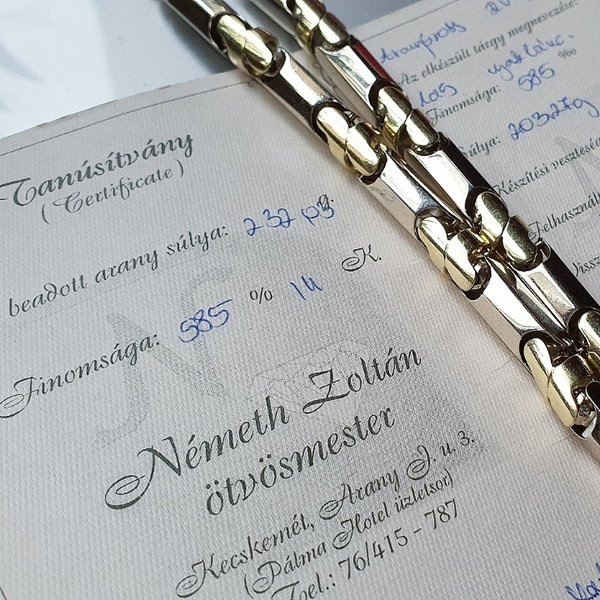 Tanúsítvány
(Certificate)
beadott arany súlya: 232
Finomsága: 585 ‰ 14 K.
Németh Zoltán
ötvösmester
Kecskemét, Arany J. u. 3.
(Pálma Hotel üzletsor)
Tel.: 76/415 - 787
Az elkészült tárgy megnevezése:
Finomsága: 585 ‰
súlya:
Készítési veszteség
Felhasznált